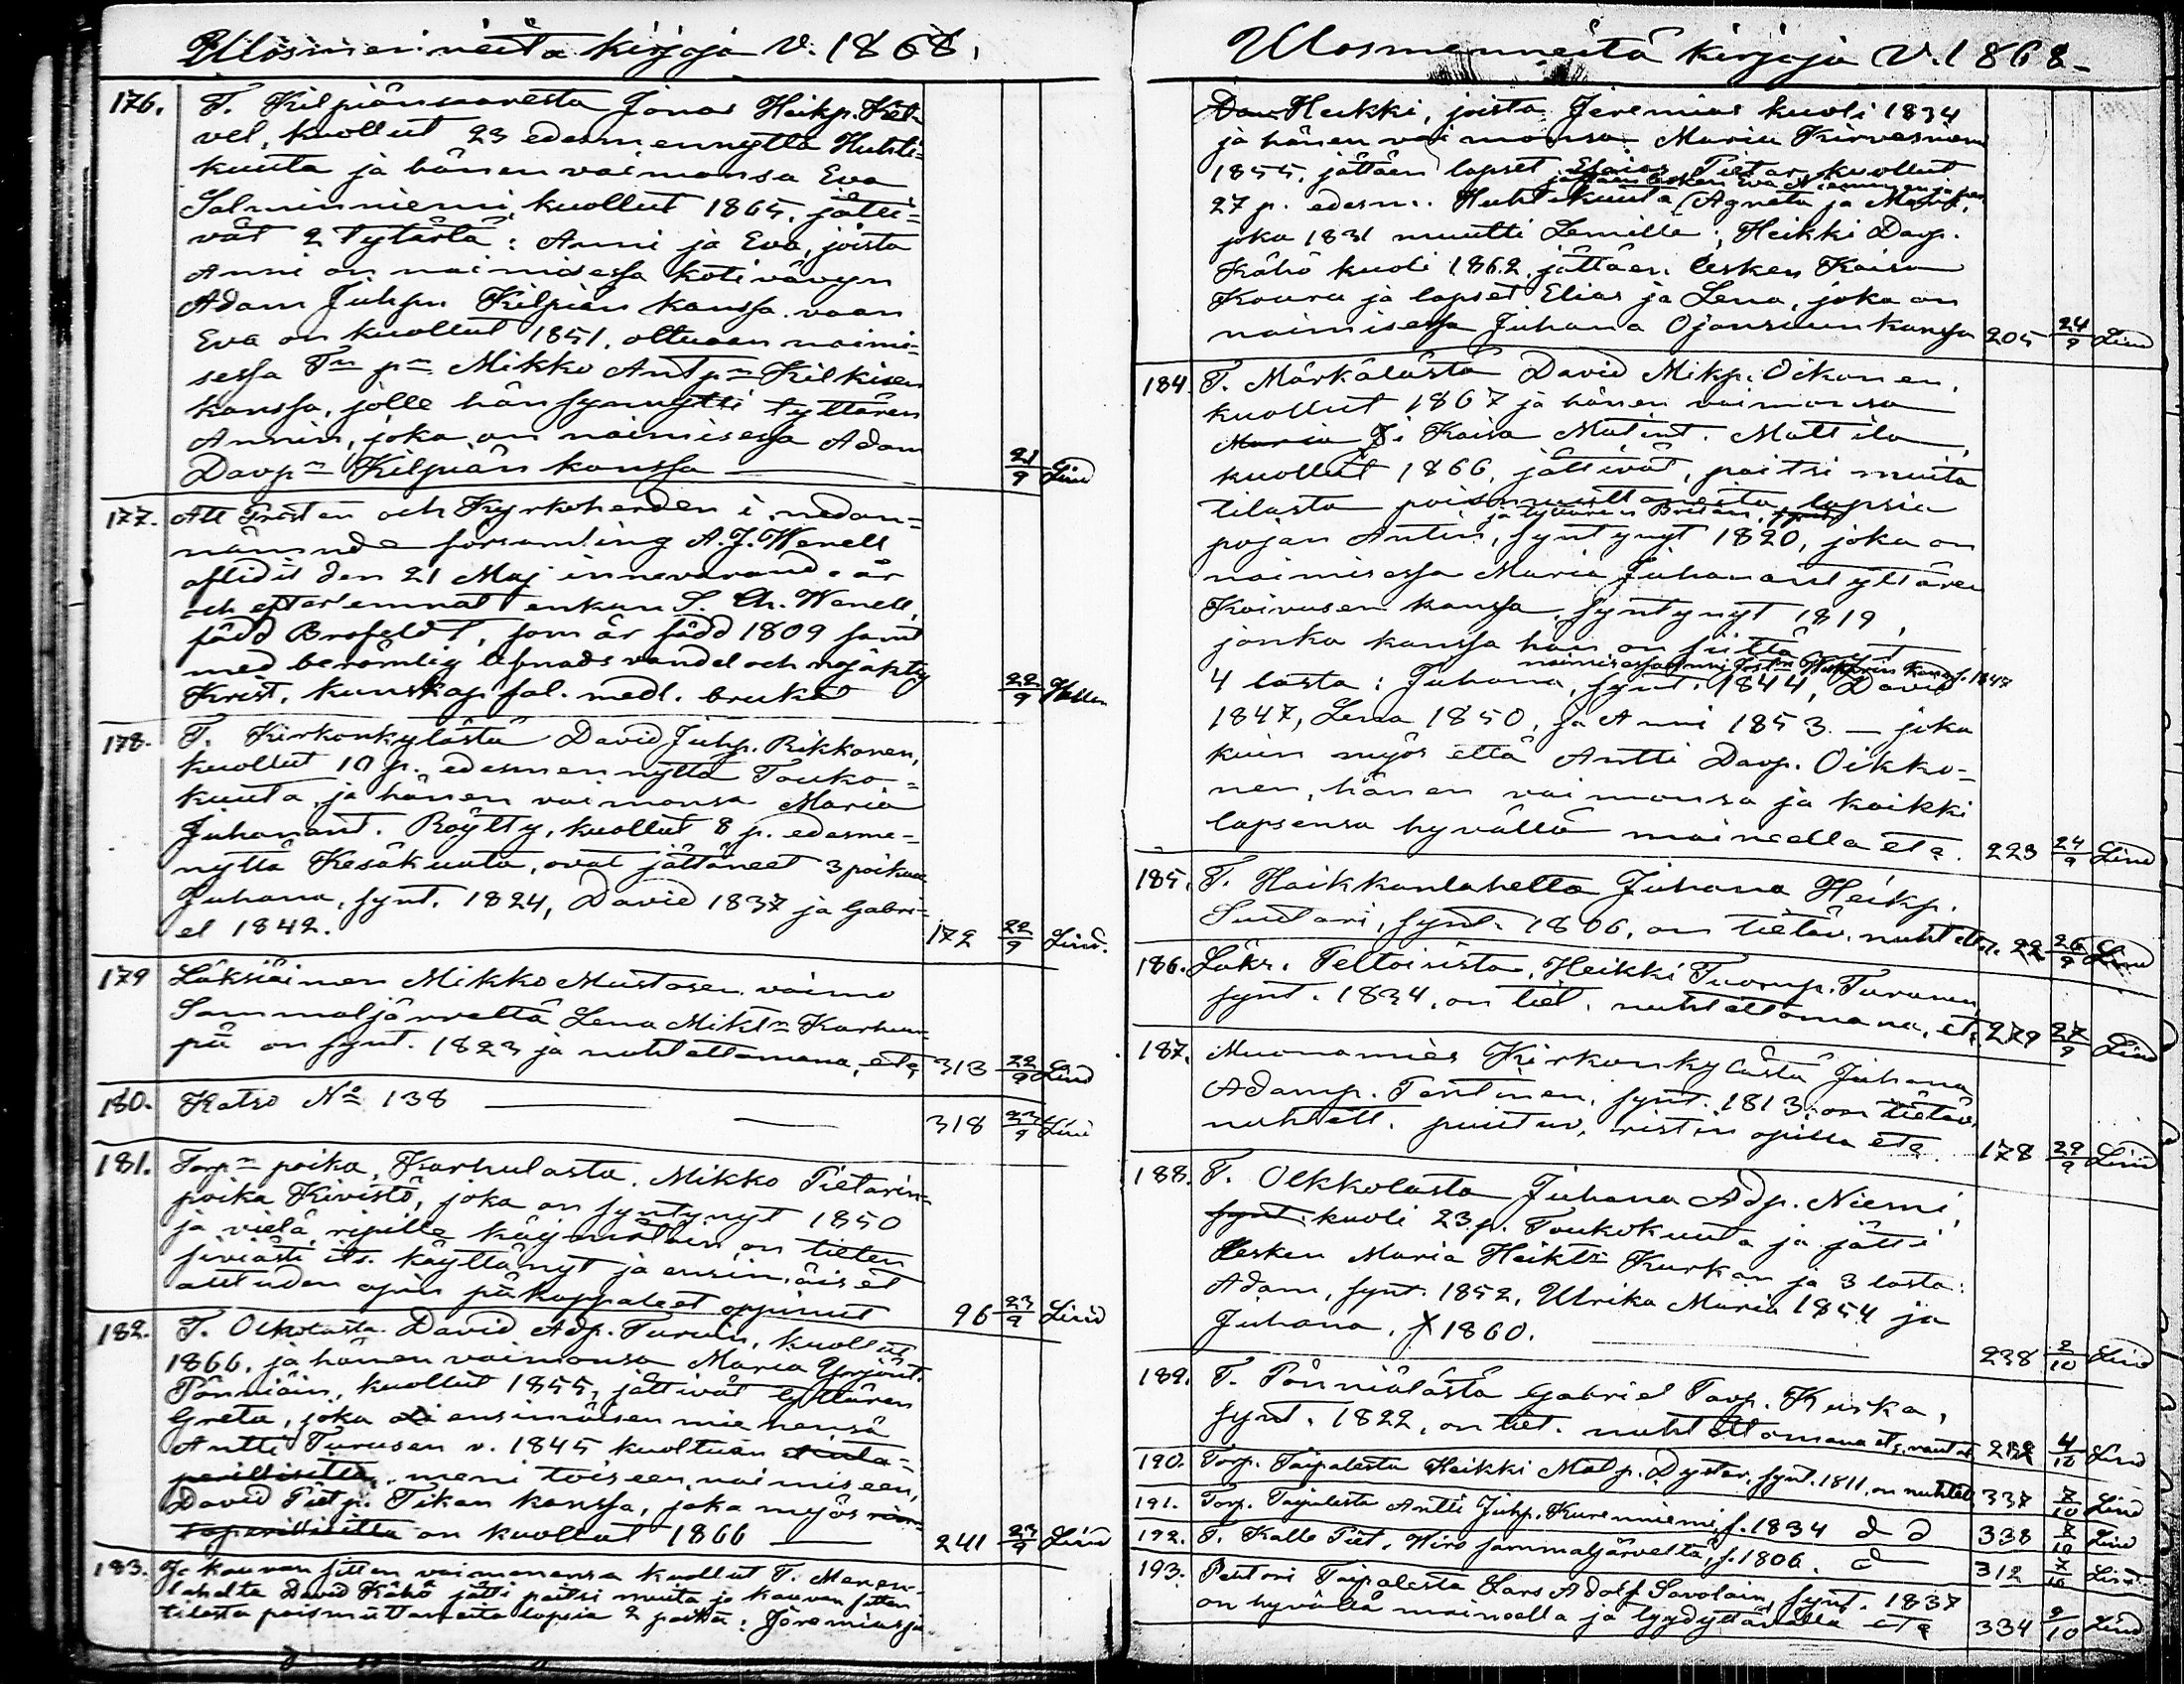 Ulosmenneitä kirjoja V. 1868.
176. T. Kilpiänsaaresta Jonas Heikp. Kil-
vel, kuollut 23 edesmennyttä Huhti-
kuuta ja hänen vaimonsa Eva
Salminniemi, kuollut 1865, jätti-
vät 2 Tytärtä: Anni ja Eva, joista
Anni on naimisessa kotivävyn
Adam Juhpn Kilpiän kanssa, vaan
Eva on kuollut 1851, oltuaan naimi-
sessa Tn pn Mikko Antpn Kilkisen
kanssa, jolle hän synnytti tyttären
Annin, joka on naimisessa Adam
Davpn Kilpiän kanssa — 21/9 Lind
177. Att Prosten och Kyrkoherden i nedan-
nämnde församling A. J. Wenell
aflidit den 21 Maj innevarande år
och efterlemnat enkan S. Ch. Wenell,
född Brofeldt, som är född 1809 samt
med berömlig lefnadsvandel och nöjaktig
Krist. kunskap sal. medl. brukat 22/9
178. T. Kirkonkylästä David Juhp. Rikkonen,
kuollut 10 p. edesmennyttä Touko-
kuuta, ja hänen vaimonsa Maria
Juhanant. Röytty, kuollut 8 p. edesme-
nyttä Kesäkuuta, ovat jättäneet 3 poikaa
Juhana, synt. 1824, David 1837 ja Gabri-
el 1842. 172 22/9 Lind.
179 Läksiäimen Mikko Mustosen vaimo
Sammaljärveltä Lena Miktn Karhun-
pä on synt. 1823 ja nuhtettomana, etc 313 22/9 Lind
180. Katso No 138 — 318 23/9 Lind
181. Torpn poika, Karhulasta, Mikko Pietarin-
poika Kivistö, joka on syntynyt 1850
ja vielä ripille käymätöin, on tietten
siviästi its. käyttänyt ja ensimäiset
autuuden opin pä kappaleet oppinut 96 23/9 Lind
182. T. Olkolasta David Adp. Turuin, kuollut
1866, ja hänen vaimonsa Maria Yrjönt.
Pönniäin, kuollut 1855, jättivät tyttären
Greta, joka ensimäisen miehensä
Antti Turusen v. 1845 kuoltuan
perillisittä, meni toiseen naimiseen,
David Pietp. Tikan kanssa, joka myös
on kuollut 1866 — 241 23/9 Lind
183. Jo kauvan sitten vaimonensa kuollut T. Meren-
lahelta David Kähö jätti paitsi muita jo kauvan sitten
tilasta poismuttaneita lapsia 2 poika: Jeremias ja
Ulosmenneitä kirjoja V. 1868.
Heikki, joista Jeremias kuoli 1834
ja hänen vaimonsa Maria Kirvesniemi
1855, jättäen lapset Elaias, Pietar, kuollut
jättäen lesken Eva
27 p. edesm. Huhtikuuta, Agneta ja
joka 1831 muutti Lemille; Heikki Davp.
Kähö kuoli 1862, jättäen lesken Kaisa
Kouru ja lapset Elias ja Lena, joka on
naimisessa Juhana Ojansuun kanssa 205 24/9 Lind
184. T. Märkälästä David Mikp. Oikonen,
kuollut 1867 ja hänen vaimonsa
Maria Kaisa Matint. Mattila,
kuollut 1866, jättivät, paitsi muita
tilasta poismuuttaneita lapsia
ja tyttären Bridan,
pojan Antin, syntynyt 1820, joka on
naimisessa Maria Juhanantyttären
Koivusen kanssa, syntynyt 1819,
jonka kanssa hän on siittänyt
4 lasta: Juhana, synt. 1844, David
1847, Lena 1850, ja Anni 1853 — joka
kuin myös että Antti Davp. Oikko-
nen, hänen vaimonsa ja kaikki
lapsensa hyvällä maineella etc. 223 24/9 Lind
185. T. Haikkanlahelta Juhana Heikp.
Suutari, synt. 1806, on tietäv. nuht etc. 22 26/9 Lind
186. Läks. Peltoisista, Heikki Tuomp. Turunen,
synt. 1834, on tiet. nuhtettomana, etc 279 27/9 Lind
187. Muonamies Kirkonkylästä Juhana
Adamp. Tentinen, synt. 1813, on tietäv.
nuhtett. puutuv. ristin opissa etc. 178 29/9 Lind
188. T. Olkkolasta Juhana Adp. Niemi,
synt. kuoli 23 p. Toukokuuta ja jätti
Lesken Maria Heiktn Kurkan ja 3 lasta:
Adam, synt. 1852, Ulrika Maria 1854 ja
Juhana, 1860. — 238 2/10 Lind
189. T. Pönniälästä Gabriel Tavp. Kuska,
synt. 1822, on tiet. nuhtettomana etc 4/10 Lind
190. Torp. Taipalesta Heikki Matp. Dyster, synt. 1811, on nuhtet. 337 7/10 Lind
191. Torp. Taipalesta Antti Juhp. Kurenniemi, s. 1834 d d 338 8/10 Lind
192. T. Kalle Piet. Hirs sammaljärveltä, s. 1806. d — 312 7/10 Lind
193. Pentori Taipalesta Lars Adolf Savolain, synt. 1837
on hyvällä maineella ja tyydyttävällä etc 334 9/10 Lind